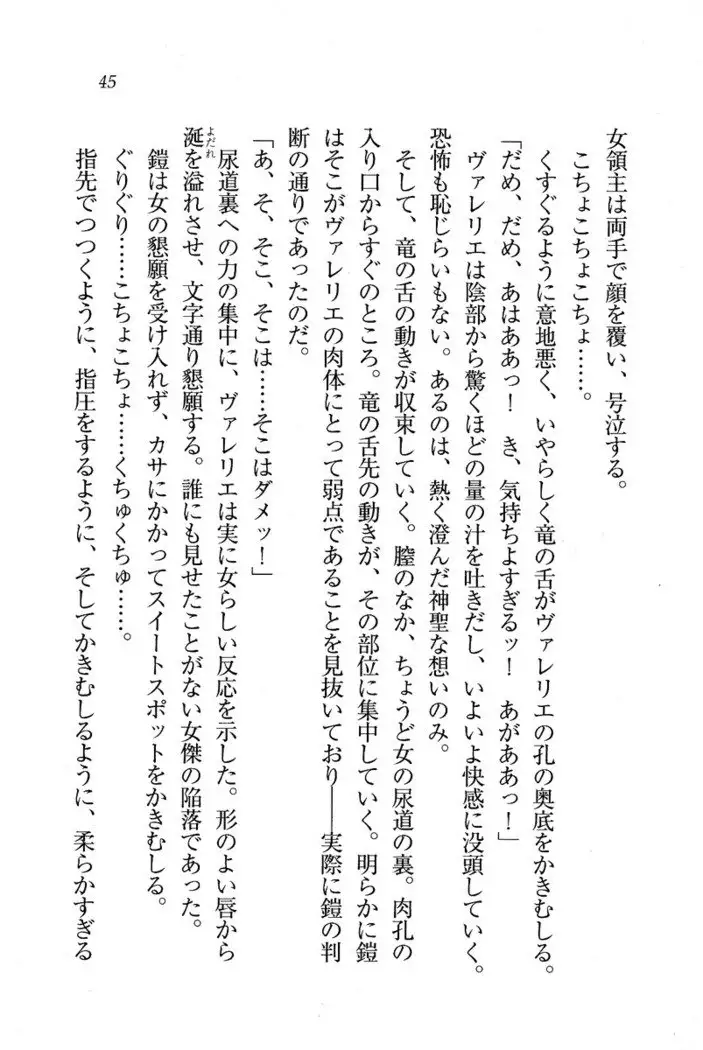 45
女領主は両手で顔を覆い、号泣する。
こちょこちょこちょ……。
くすぐるように意地悪く、いやらしく竜の舌がヴァレリエの孔の奥底をかきむしる。
「だめ、だめ、あはああっ！　き、気持ちよすぎるッ！　あがああっ！」
ヴァレリエは陰部から驚くほどの量の汁を吐きだし、いよいよ快感に没頭していく。
恐怖も恥じらいもない。あるのは、熱く澄んだ神聖な想いのみ。
そして、竜の舌の動きが収束していく。膣のなか、ちょうど女の尿道の裏。肉孔の
入り口からすぐのところ。竜の舌先の動きが、その部位に集中していく。明らかに鎧
はそこがヴァレリエの肉体にとって弱点であることを見抜いており――実際に鎧の判
断の通りであったのだ。
「あ、そ、そこ、そこは……そこはダメッ！」
尿道裏への力の集中に、ヴァレリエは実に女らしい反応を示した。形のよい唇から
よだれ
涎を溢れさせ、文字通り懇願する。誰にも見せたことがない女傑の陥落であった。
鎧は女の懇願を受け入れず、カサにかかってスイートスポットをかきむしる。
ぐりぐり……こちょこちょ……くちゅくちゅ……。
指先でつつくように、指圧をするように、そしてかきむしるように、柔らかすぎる